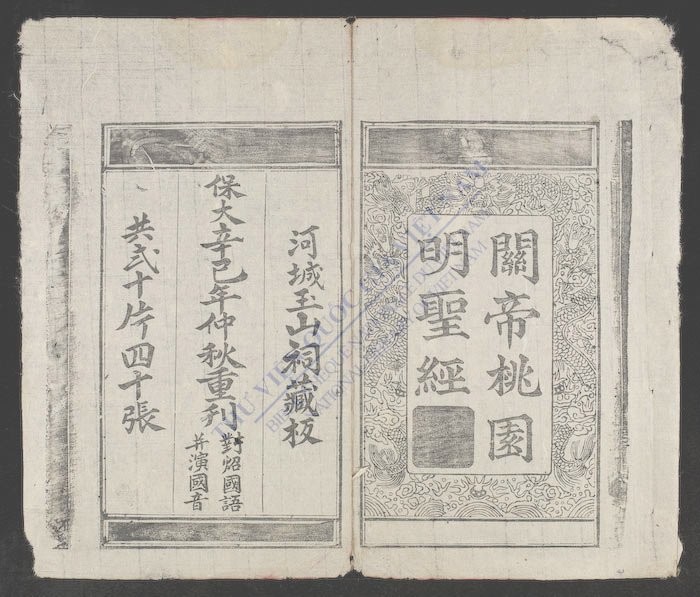 關帝桃園
明聖經
河城玉山祠藏板
保大辛巳年仲秋重刋
對炤國語
并演國音
共弍十片四十張
THƯ VIỆN QUỐC GIA VIỆT NAM
BIBLIOTHEQUE NATIONALE DU VIETNAM
NATIONAL LIBRARY OF VIETNAM